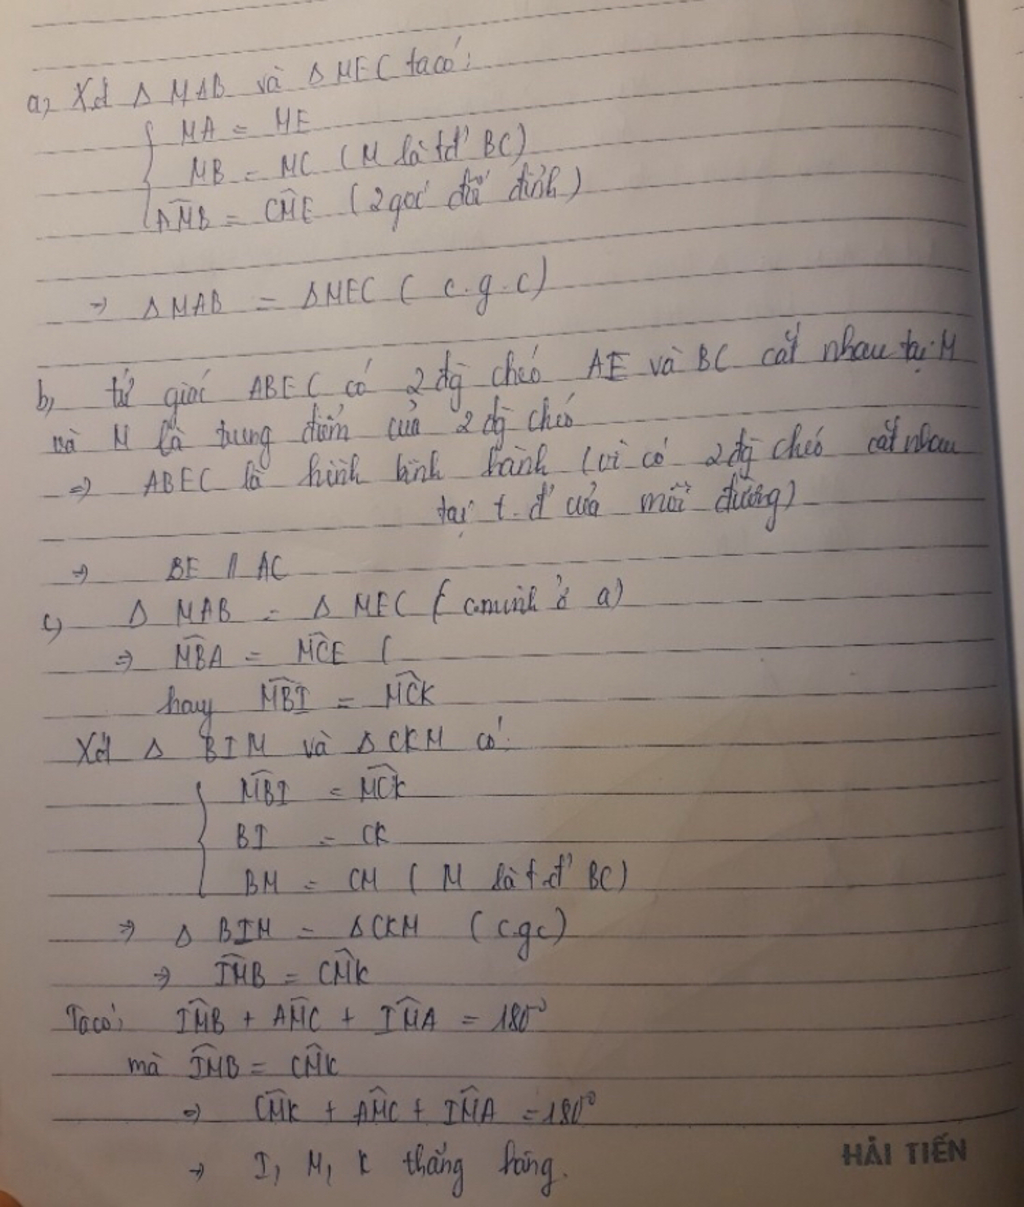 a, Xét Δ MAB và Δ MEC ta có:
MA = ME
MB = MC (M là tđ' BC)
AM̂B = CM̂E (2 góc đối đỉnh)
=> ΔMAB = ΔMEC (c.g.c)
b, tứ giác ABEC có 2 đg chéo AE và BC cắt nhau tại M
và M là trung điểm của 2 đg chéo
=> ABEC là hình bình hành (vì có 2 đg chéo cắt nhau
tại t.đ' của mỗi đường)
=> BE // AC
c, Δ MAB = Δ MEC (cminh ở a)
=> MB̂A = MĈE (
hay MB̂I = MĈK
Xét Δ BIM và Δ CKM có:
MB̂I = MĈK
BI = CK
BM = CM (M là t.đ' BC)
=> Δ BIM = ΔCKM (cgc)
=> IM̂B = CM̂K
Ta có: IM̂B + AM̂C + IM̂A = 180°
mà IM̂B = CM̂K
=> CM̂K + AM̂C + IM̂A = 180°
=> I, M, K thẳng hàng.
HẢI TIẾN